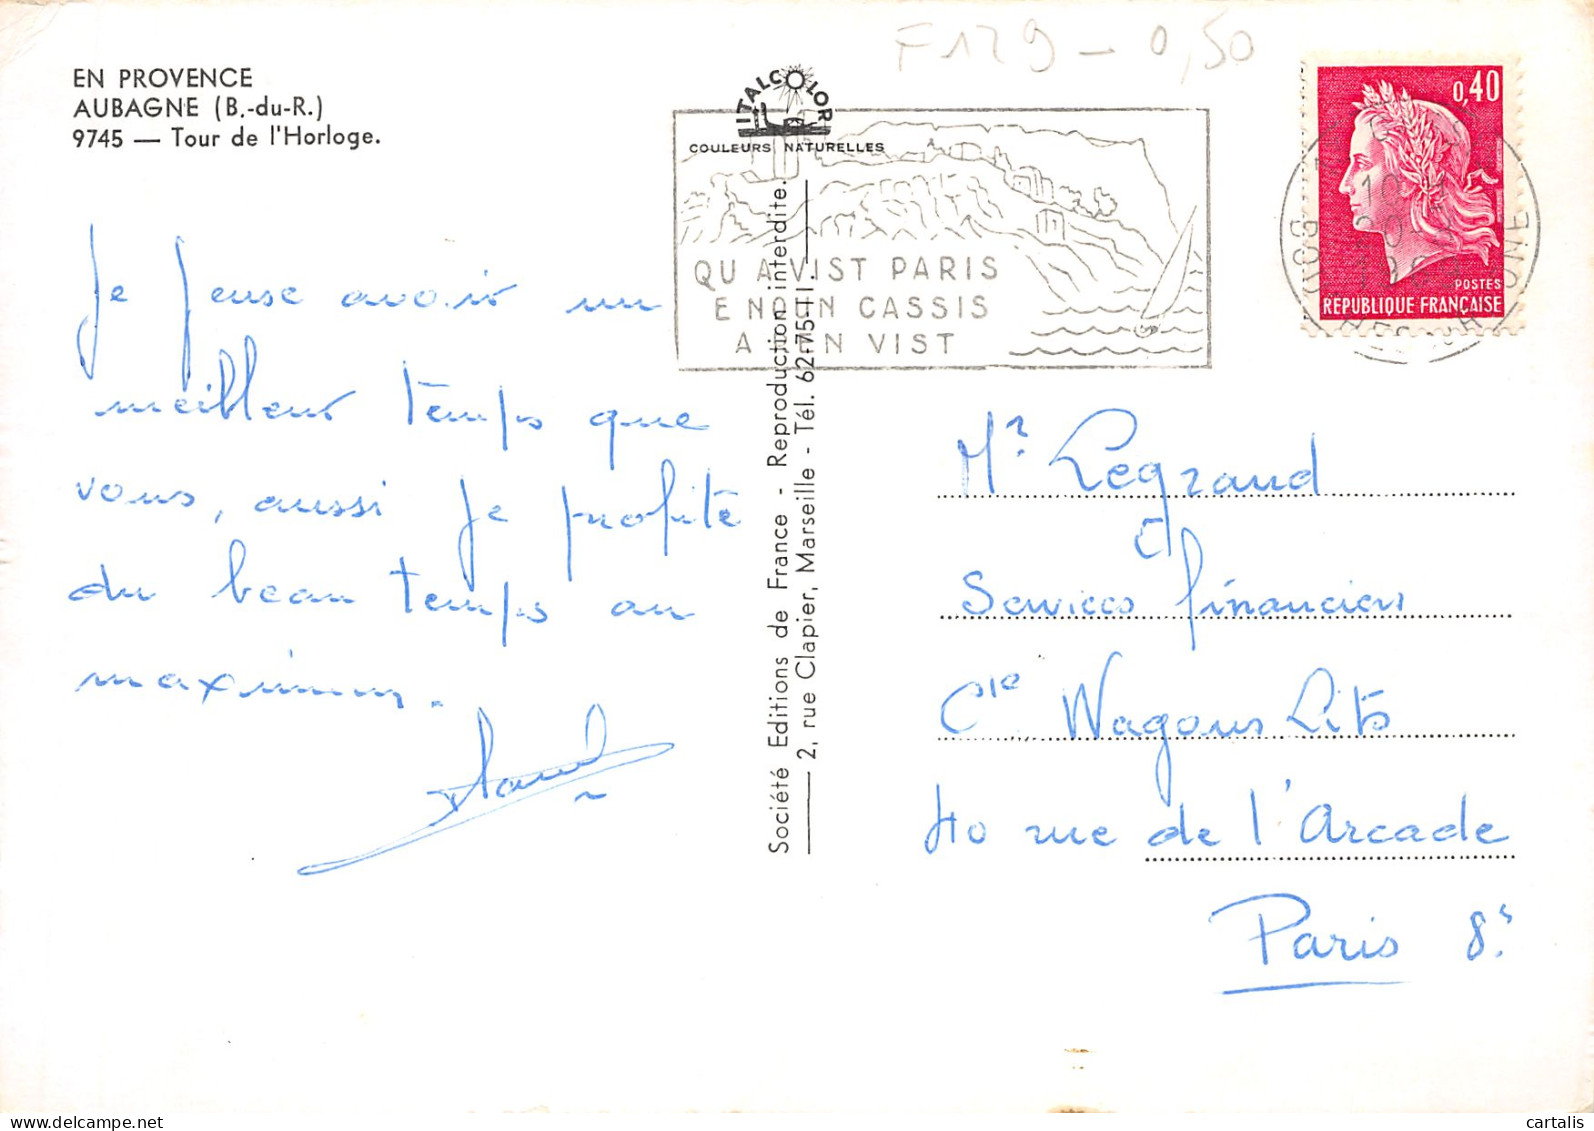 EN PROVENCE
AUBAGNE (B.-du-R.)
9745 — Tour de l'Horloge.
Je pense avoir un
meilleur temps que
vous, aussi je profite
du beau temps au
maximum.
ITALCOLOR
COULEURS NATURELLES
Société Editions de France - Reproduction interdite.
2, rue Clapier, Marseille - Tél. 62-75-11.
QU A VIST PARIS
E NOUN CASSIS
A REN VIST
F129 - 0,50
0,40
POSTES
REPUBLIQUE FRANÇAISE
BOUCHES DU RHONE
Mr Legrand
Services financiers
Cie Wagons Lits
40 rue de l'Arcade
Paris 8e
cartalis
www.delcampe.net